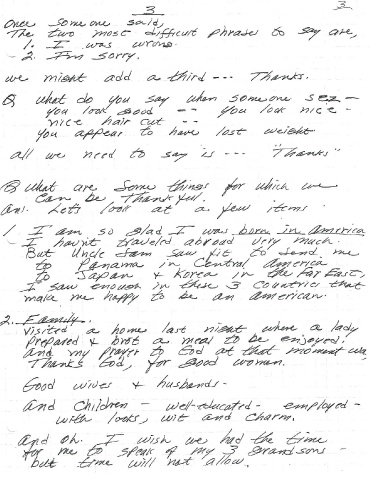 3
3
Once someone said,
The two most difficult phrases to say are,
1. I was wrong.
2. I'm sorry.
we might add a third --- Thanks.
Q what do you say when someone sez -
you look good -- you look nice -
nice hair cut --
you appear to have lost weight
all we need to say is --- "Thanks"
Q What are some things for which we
can be thankful.
Ans. Let's look at a few items:
1. I am so glad I was born in America
I havn't traveled abroad very much.
But Uncle Sam saw fit to send me
to Panama in Central America
to Japan & Korea in the Far East.
I saw enough in these 3 countries that
make me happy to be an american.
2. Family.
visited a home last night where a lady
prepared & brot a meal to be enjoyed.
and my prayer to God at that moment was,
Thanks God, for good woman.
Good wives & husbands -
and children - well-educated - employed -
with looks, wit and charm.
and oh. I wish we had the time
for me to speak of my 3 grandsons -
but time will not allow.